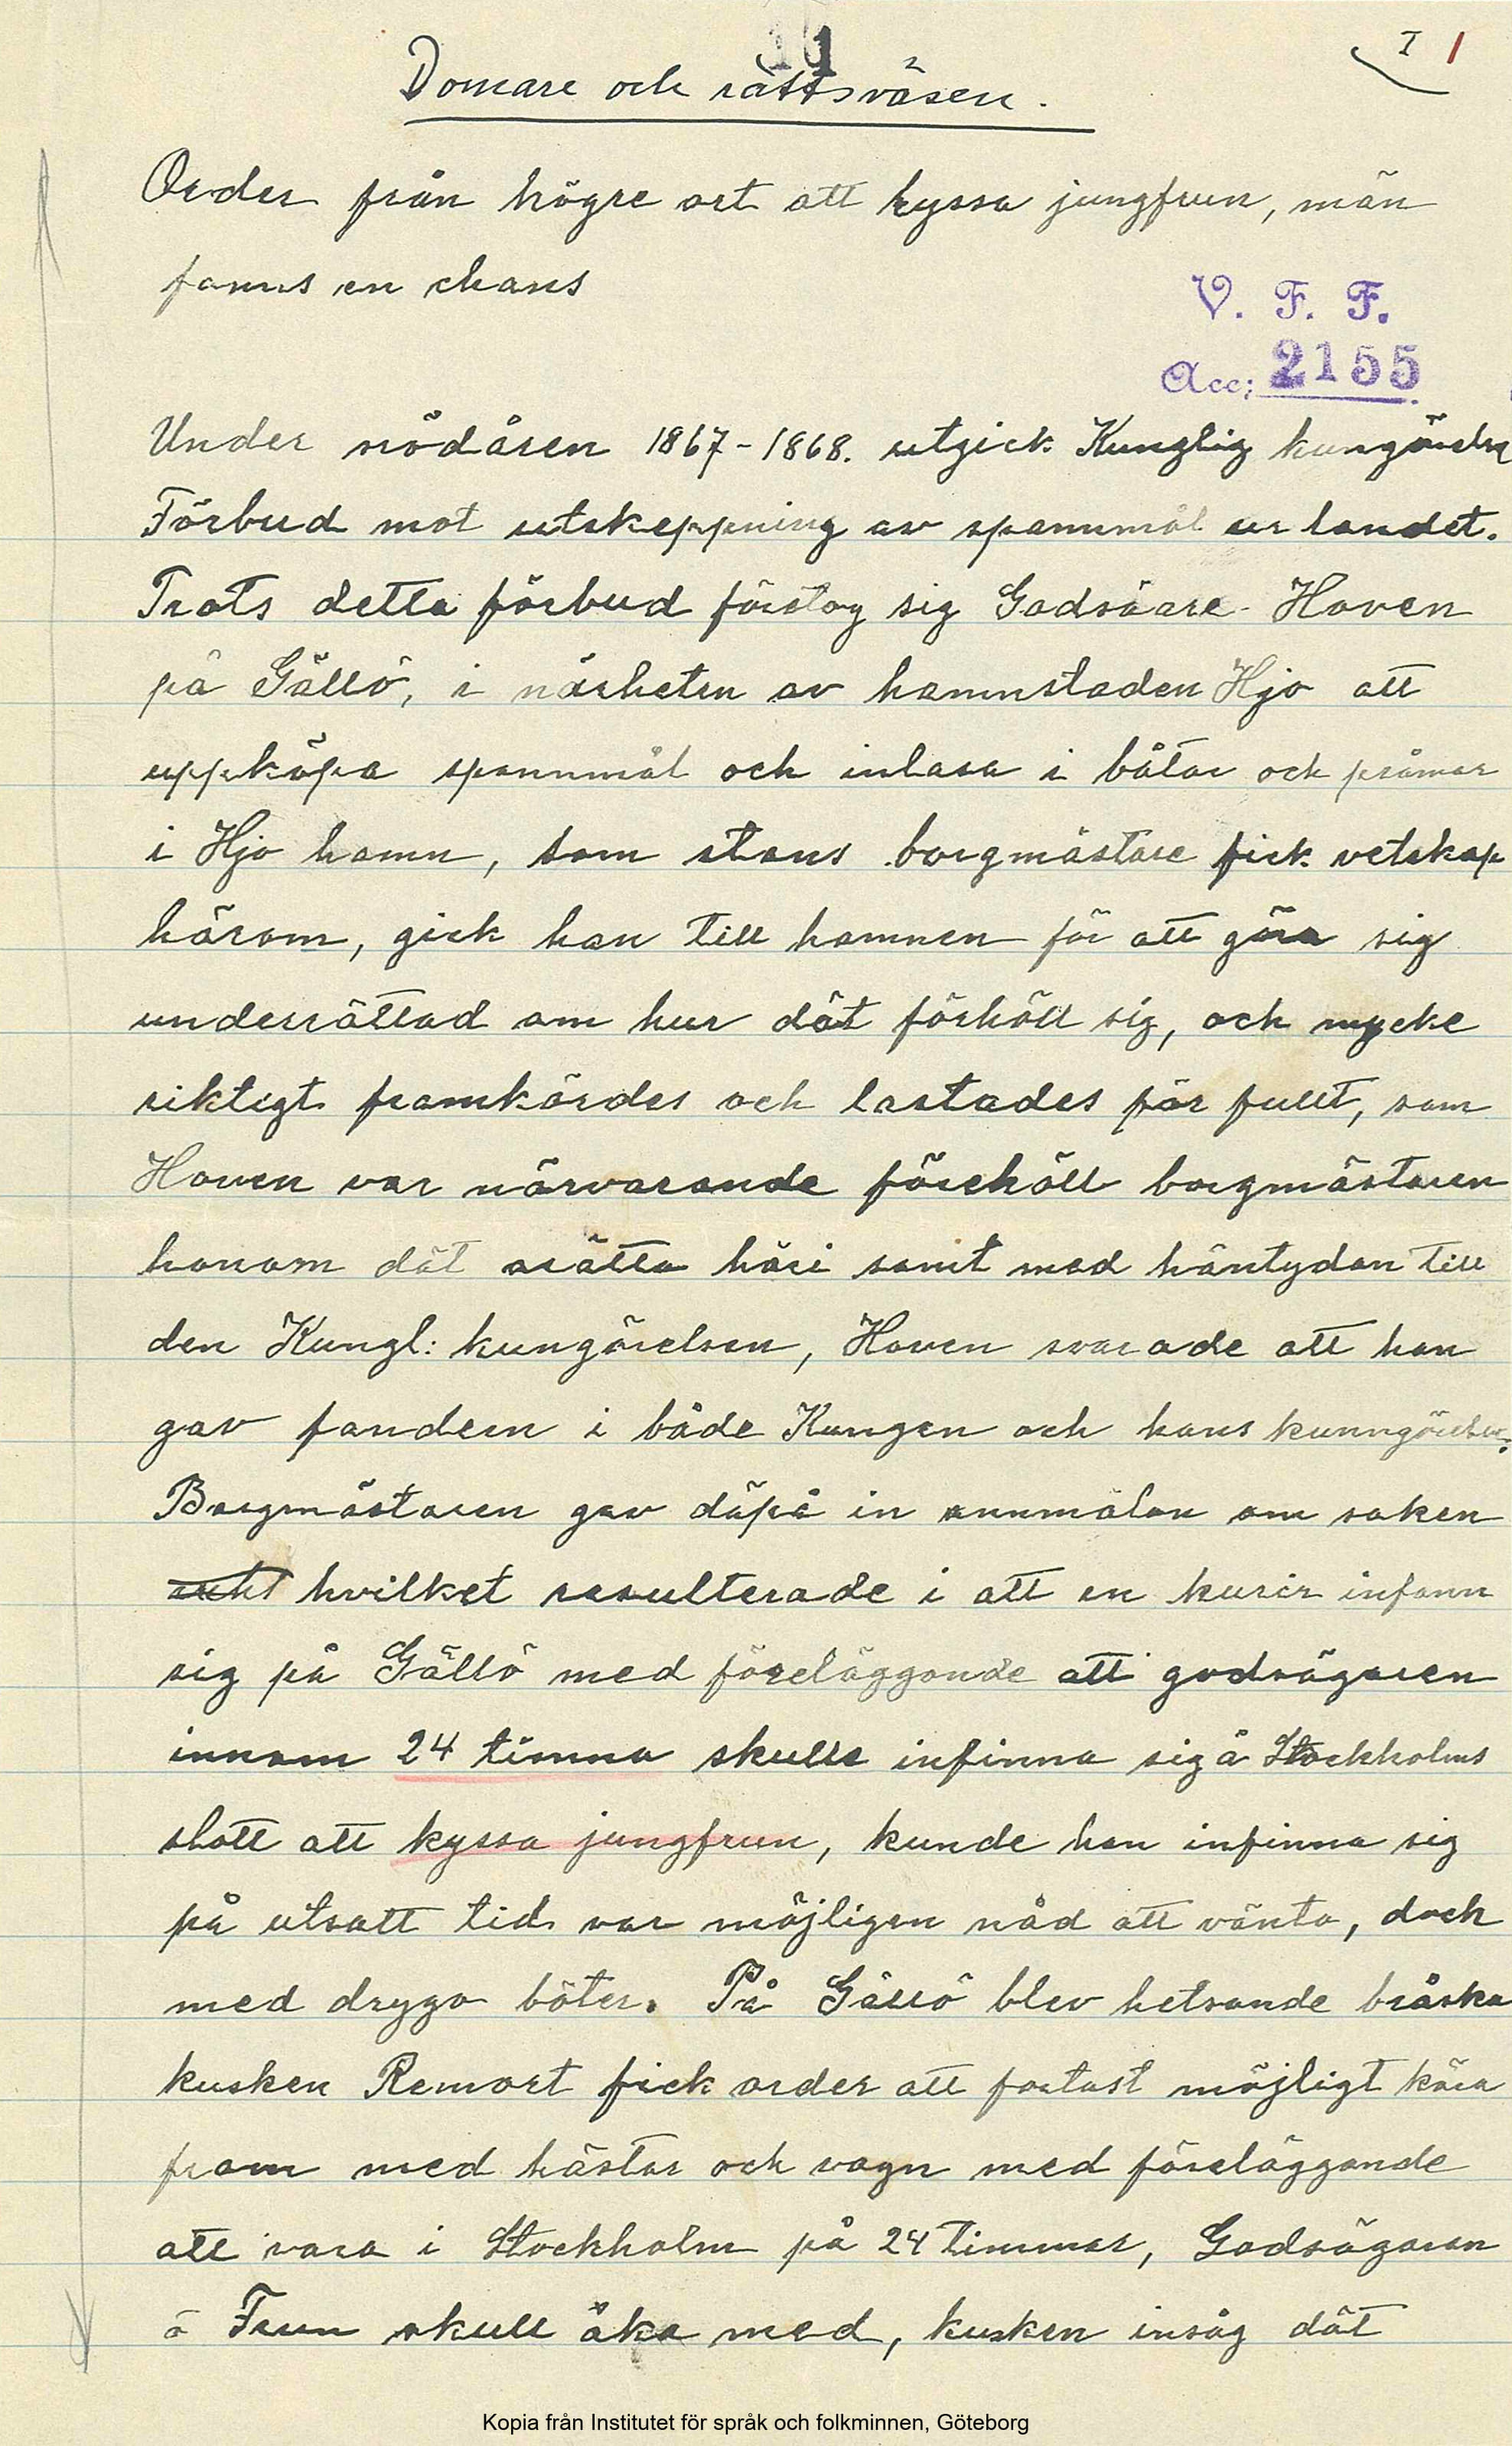 I 1
Domare och rättsväsen.
Order från högre ort att kyssa jungfrun, män
fanns en chans
V. F. F.
Acc; 2155
Under nödåren 1867-1868. utgick Kunglig
Förbud mot utskeppning av spannmål ur landet.
Trots detta förbud företog sig Godsäare Hoven
på Gällö, i närheten av hamnstaden Hjo att
uppköpa spannmål och inlasa i båtar och pråmar
i Hjo hamn, som stans borgmästare fick vetskap
härom, gick han till hamnen för att göra sig
underrättad om hur dät förhöll sig, och mycke
riktigt framkördes och lastades för fullt, som
Hoven var närvarande förehöll borgmästaren
honom dät orätta häri samt med häntydan till
den Kungl: kungörelsen, Hoven svarade att han
gav fanden i både Kungen och hans
Borgmästaren gav däpå in annmälan om saken
hvilket resulterade i att en kurir infann
sig på Gällö med föreläggande att godsägaren
innom 24 timma skulle infinna sig å Stockholms
slott att kyssa jungfrun, kunde han infinna sig
på utsatt tid var möjligen nåd att vänta, dock
med dryga böter. På Gällö blev hetsande bråska
kusken Remort fick order att fortast möjligt köra
fram med hästar och vagn med föreläggande
att vara i Stockholm på 24 timmar, Godsägaren
å Frun skull åka med, kusken insåg dät
Kopia från Institutet för språk och folkminnen, Göteborg